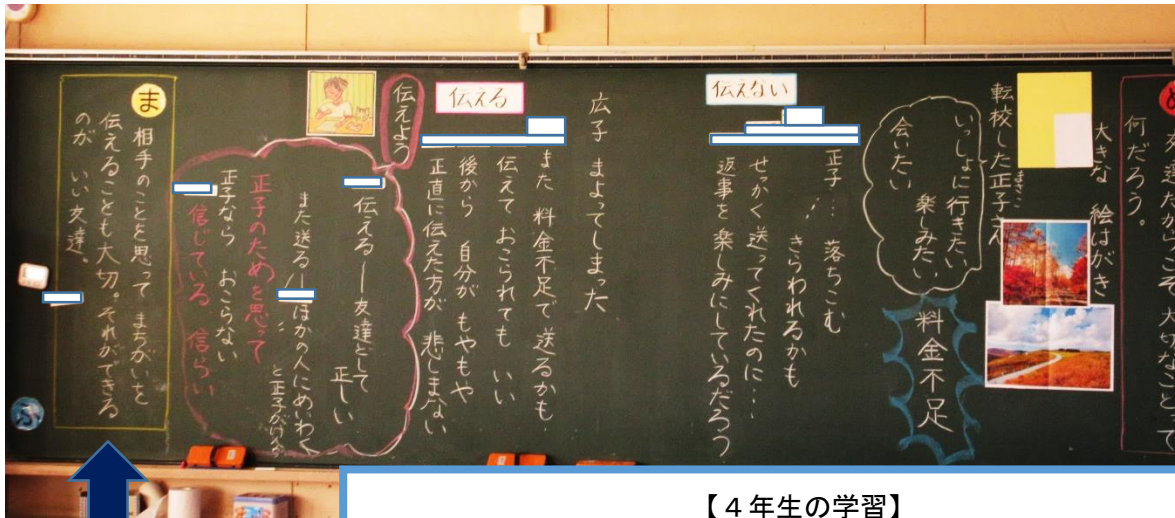 め
友達だからこそ 大切なことって
何だろう。
大きな 絵はがき
転校した正子さん
まさこ
いっしょに行きたい
楽しみたい
会いたい
料金不足
伝えない
正子… 落ちこむ
〃 きらわれるかも
せっかく送ってくれたのに…
返事を楽しみにしているだろう
広子 まよってしまった
伝える
また 料金不足で 送るかも
伝えて おこられても いい
後から 自分が もやもや
正直に伝えた方が 悲しまない
伝えよう
伝える—友達として
正しい
また送る—ほかの人にめいわく
と正子が
正子のためを思って
正子なら おこらない
信じている 信らい
ま
相手のことを思って まちがいを
伝えることも大切。それができる
のが いい友達。
ふ
【4年生の学習】